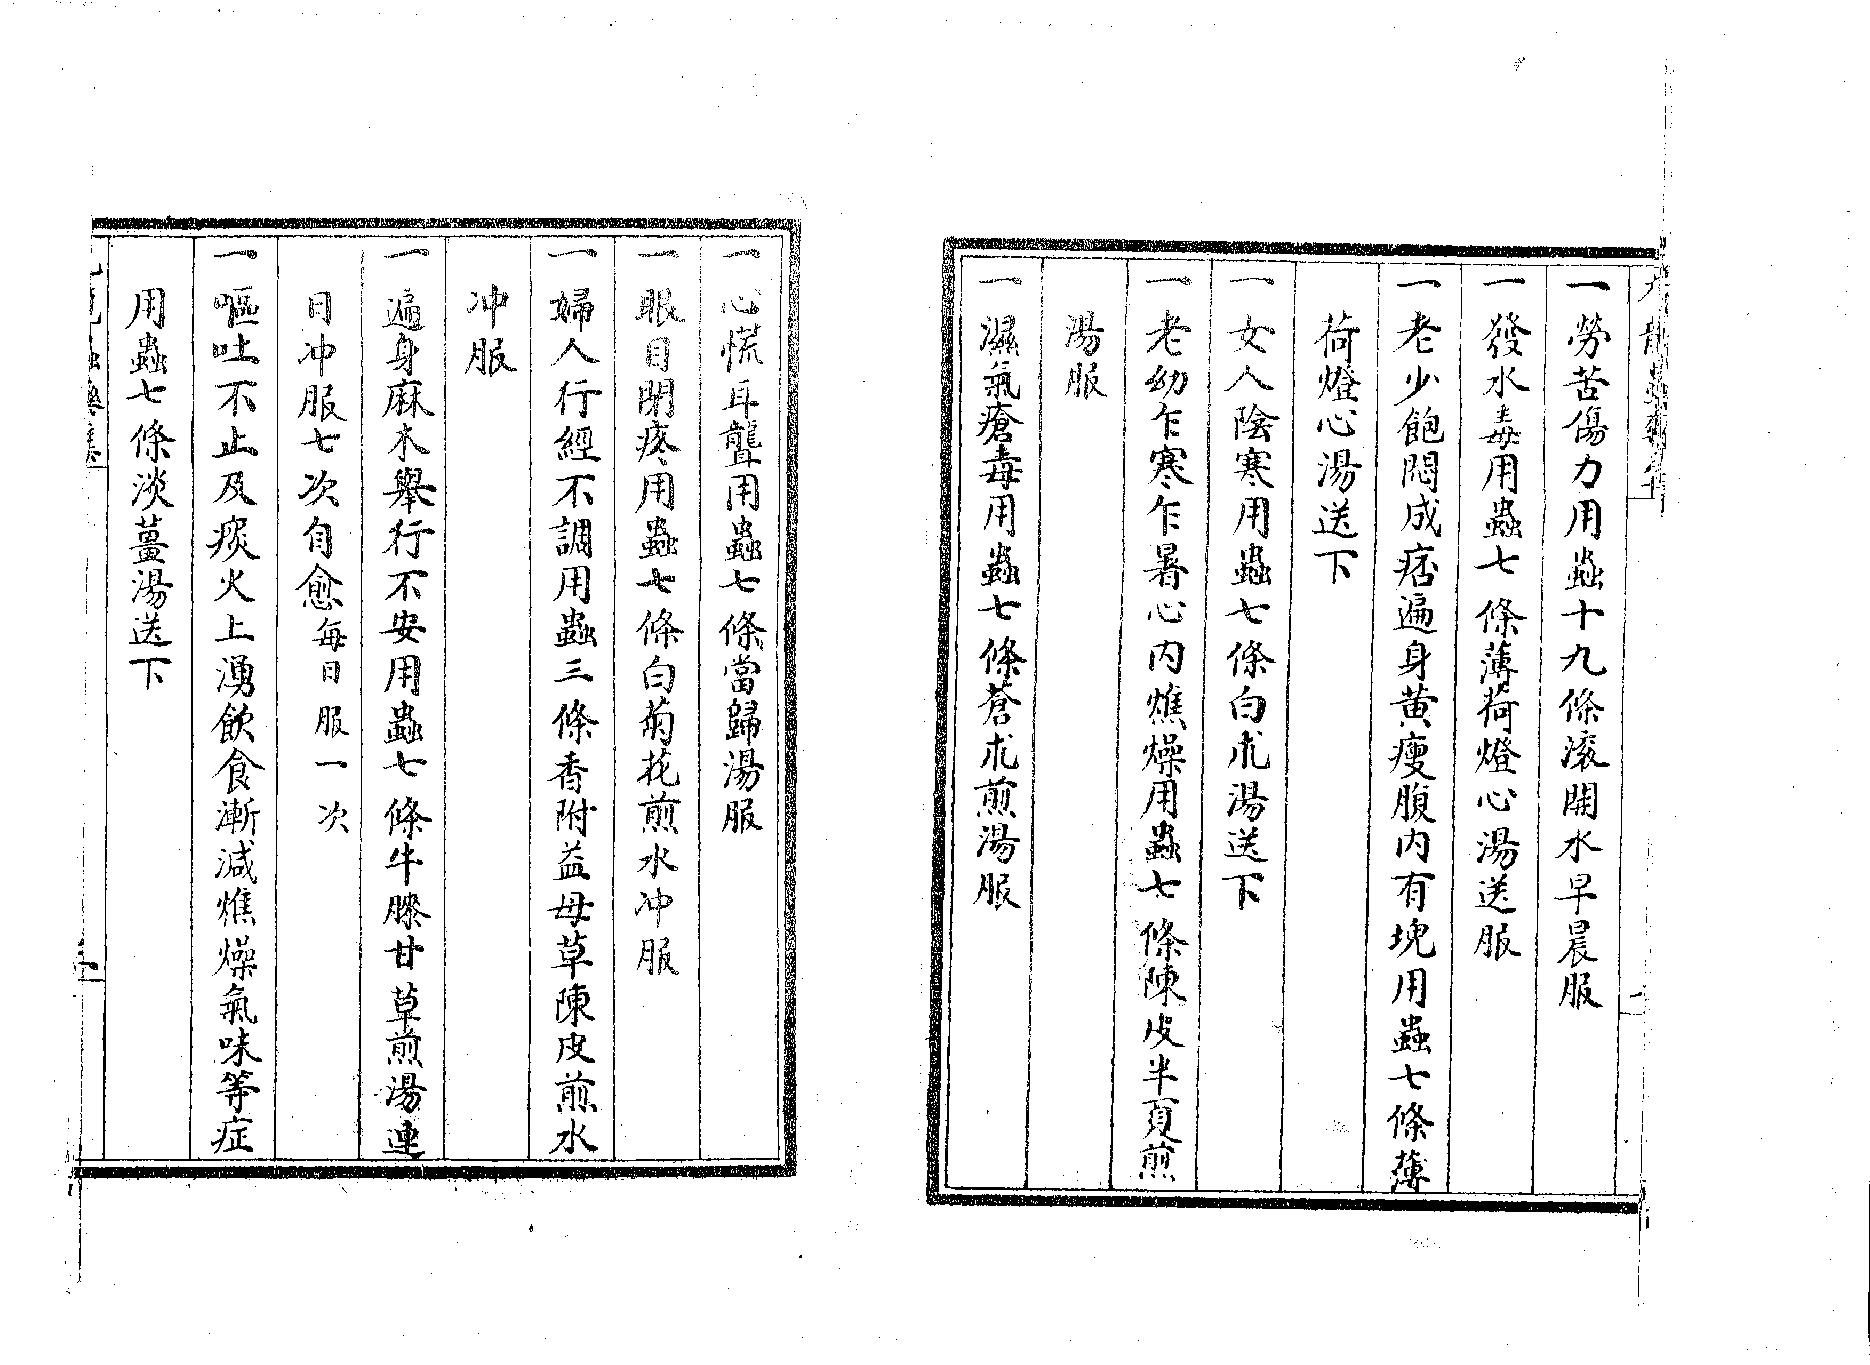 一勞苦傷力用蟲十九條滚開水早晨服
一發水毒用蟲七條薄荷燈心湯送服
一老少飽悶成痞遍身黄瘦腹内有塊用蟲七條薄
荷燈心湯送下
一女人陰寒用蟲七條白朮湯送下
一老幼乍寒乍暑心内燋燥用蟲七條陳皮半頁煎
湯服
一濕氣瘡毒用蟲七條蒼朮煎湯服
一心慌耳聾用蟲七條當歸湯服
一眼目閉疼用蟲七條白菊花煎水冲服
一婦人行經不調用蟲三條香附益母草陳皮煎水
冲服
一遍身麻木舉行不安用蟲七條牛膝甘草煎湯連
日冲服七次自愈每日服一次
一嘔吐不止及痰火上湧飲食漸減燋燥氣味等症
用蟲七條淡薑湯送下